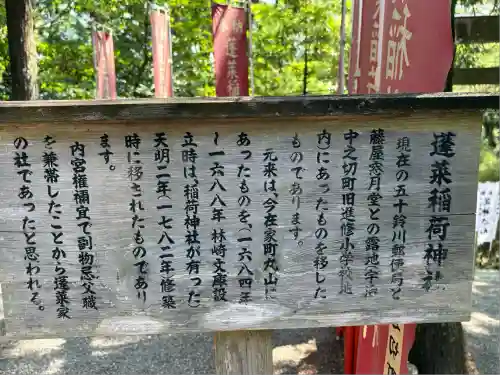 蓬莱稲荷神社
現在の五十鈴川郵便局と
藤屋窓月堂との露地(字
中之切町旧進修小学校地
内にあったものを移した
ものであります。
元来は、今在家町丸山に
あったものを(一六八四年
~一六八八年)林崎文庫設
立時は(稲荷神社が有った)
天明二年(一七八二年)修築
時に移されたものであり
ます。
内宮権禰宜で副物忌父職
を兼帯したことから蓬莱家
の社であったと思われる。
蓬莱
稲